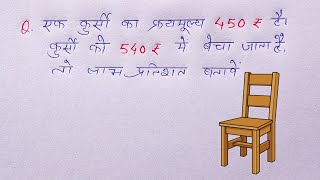 Q. एक कुर्सी का क्रयमूल्य 450 ₹ है।
कुर्सी को 540 ₹ में बेचा जाता है,
तो लाभ प्रतिशत बतावें